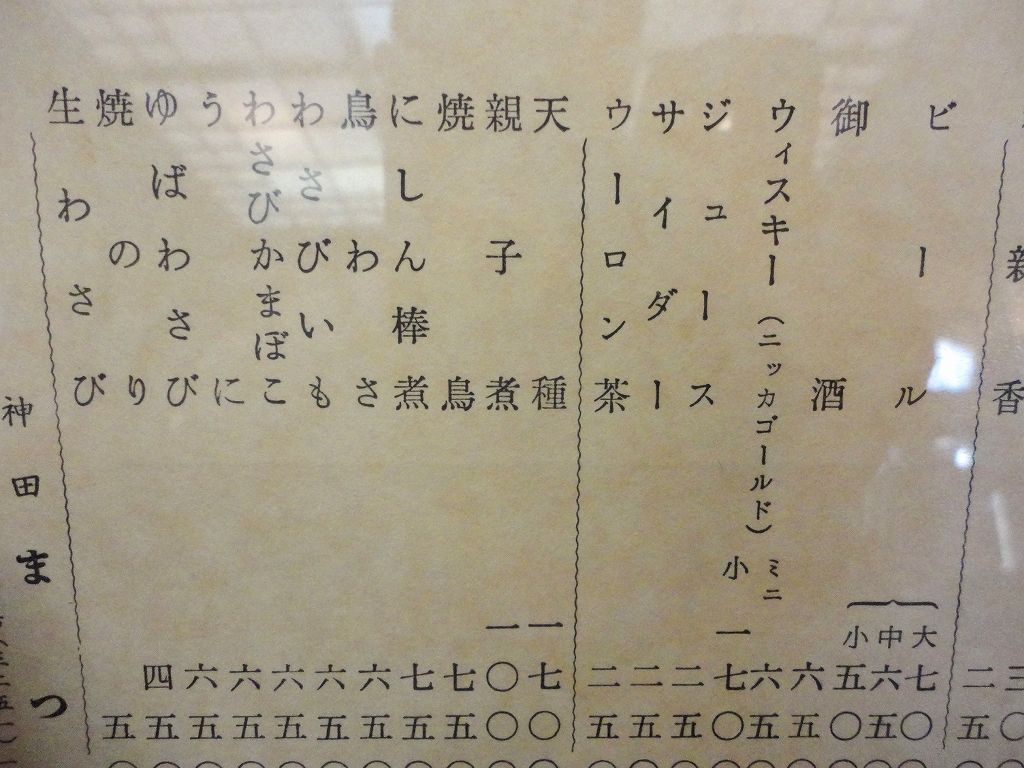 親 香
三〇
二五
ビール 大 七〇〇
中 六五〇
小 五〇〇
御酒 六五〇
ウィスキー（ニッカゴールド）ミニ 六五〇
小 一七〇〇
ジュース 二五〇
サイダー 二五〇
ウーロン茶 二五〇
天種 一七〇〇
親子煮 一〇〇〇
焼鳥 七五〇
にしん棒煮 七五〇
鳥わさ 六五〇
わさびいも 六五〇
わさびかまぼこ 六五〇
うに 六五〇
ゆばわさび 六五〇
焼のり 四五〇
生わさび 五〇
神田まつ